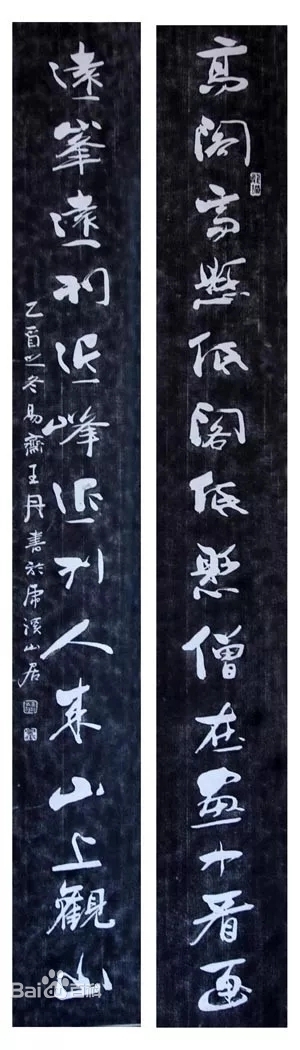 高閣高懸低閣低懸僧在畫中看画
遠峯遠列近峰近列人来山上觀山
乙酉之冬易齋王丹書於虎溪山居
Bai百科